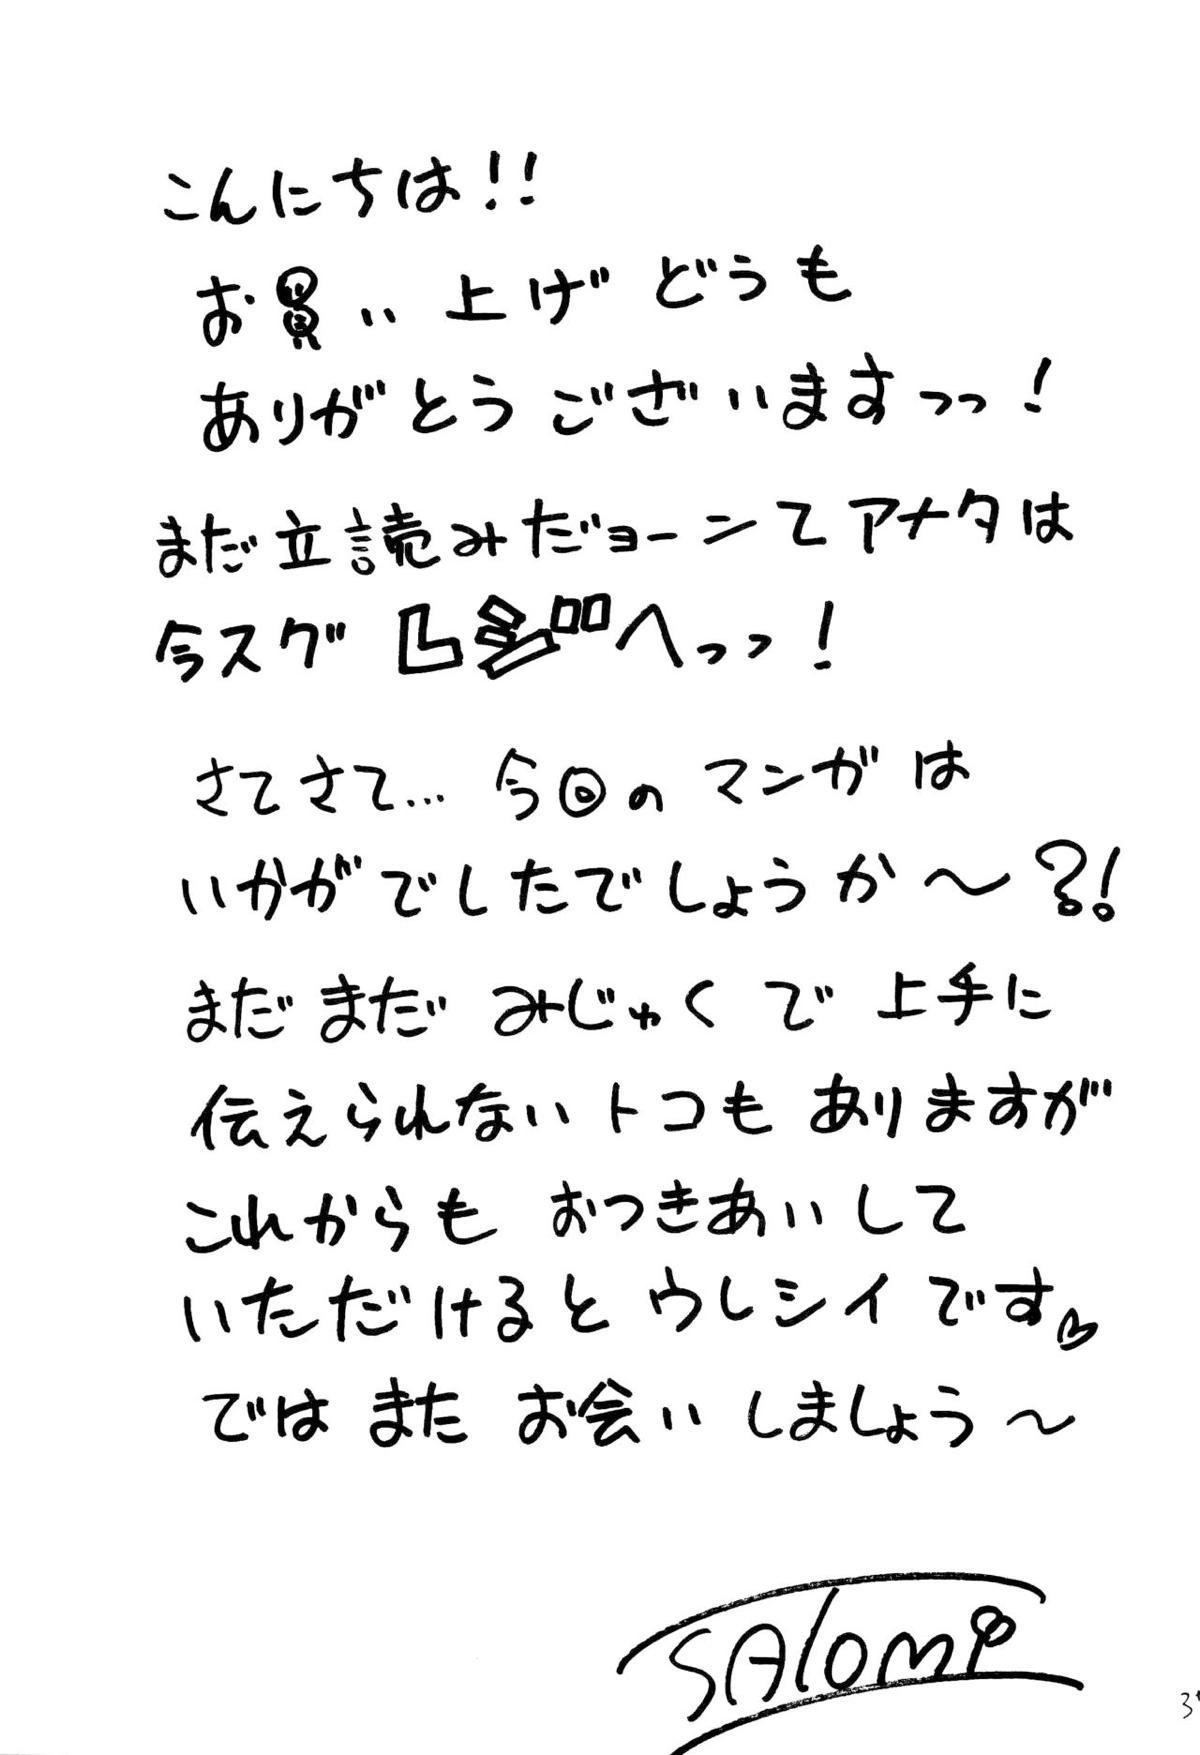 こんにちは!!
お買い上げどうも
ありがとうございますっっ!
まだ立読みだョーンてアナタは
今スグレジへっっ!
さてさて…今回のマンガは
いかがでしたでしょうか〜?!
まだまだみじゅくで上手に
伝えられないトコもありますが
これからもおつきあいして
いただけるとウレシイです♡
ではまたお会いしましょう〜
SAlomi